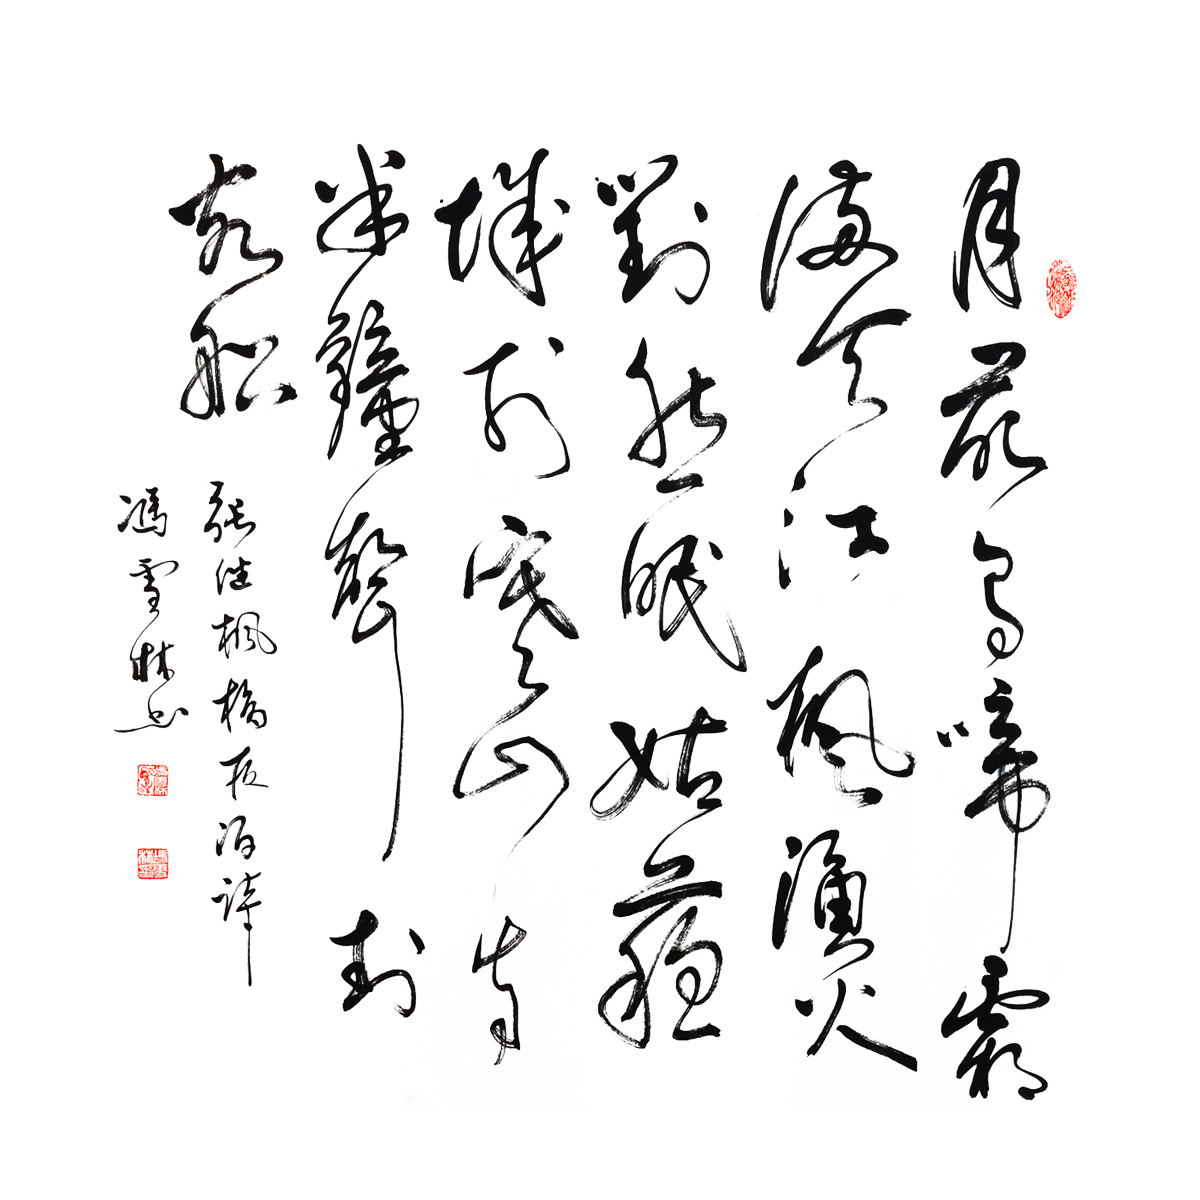 月落烏啼霜
滿天江楓漁火
對愁眠姑蘇
城外寒山寺
半鐘聲到
客船
張继楓橋夜泊詩
馮雪林書